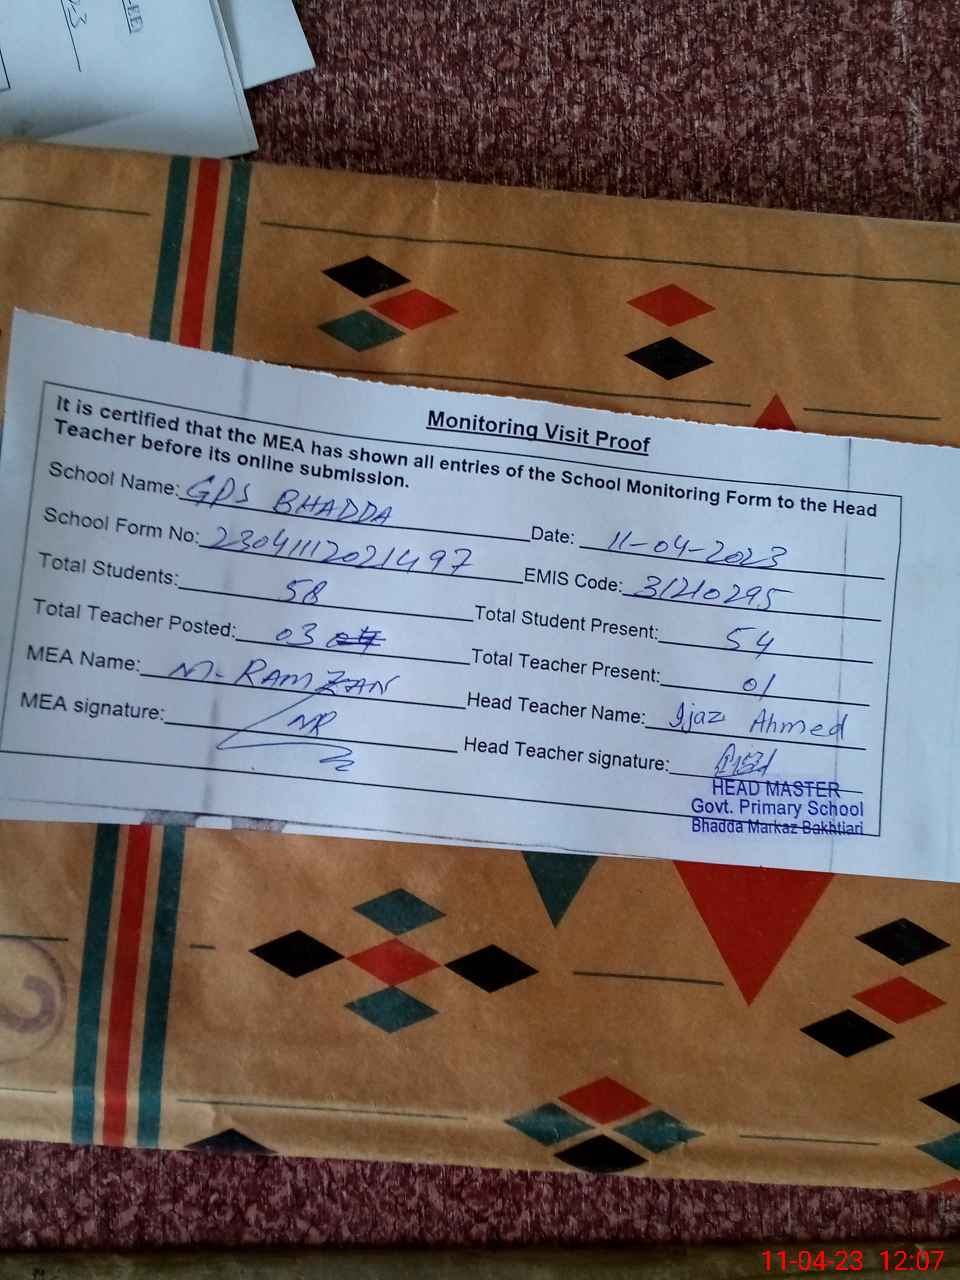 Monitoring Visit Proof
It is certified that the MEA has shown all entries of the School Monitoring Form to the Head
Teacher before its online submission.
School Name: GPS BHADDA Date: 11-04-2023
School Form No: 230411120211497 EMIS Code: 31210295
Total Students: 58 Total Student Present: 54
Total Teacher Posted: 03 Total Teacher Present: 01
MEA Name: M. RAMZAN Head Teacher Name: Ijaz Ahmed
MEA signature: MR Head Teacher signature:
HEAD MASTER
Govt. Primary School
Bhadda Markaz Bakhtiari
11-04-23 12:07